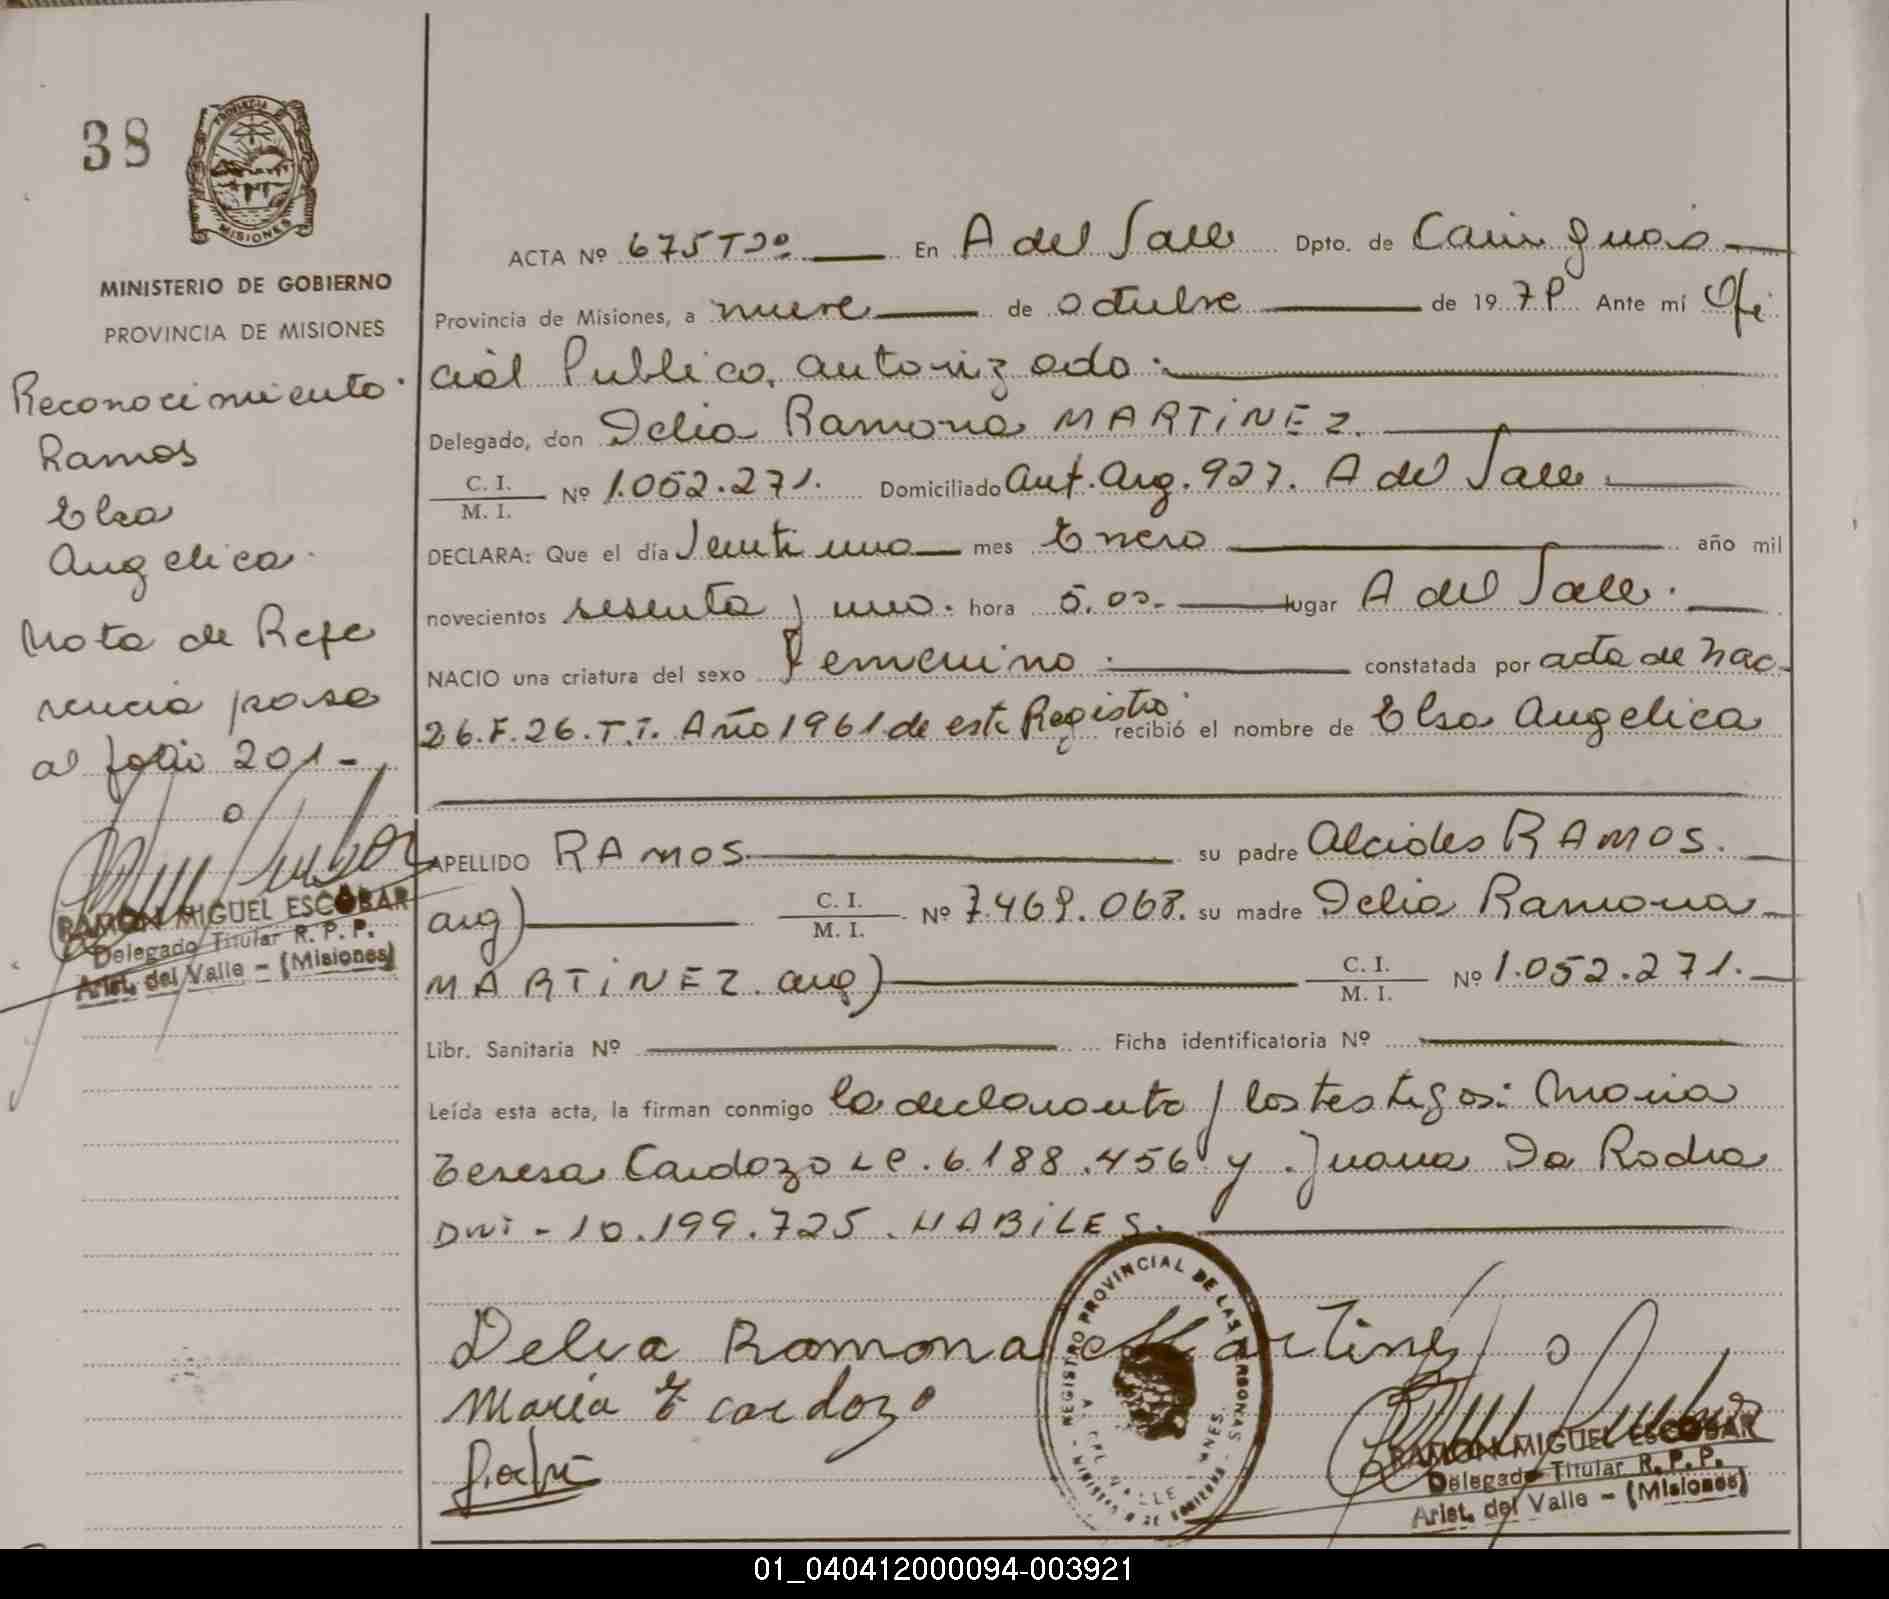 38
PROVINCIA
MISIONES
MINISTERIO DE GOBIERNO
PROVINCIA DE MISIONES
Reconocimiento
Ramos
Elsa
Angelica
Nota de Refe
rencia pasa
al folio 201-
RAMON MIGUEL ESCOBAR
Delegado Titular R. P. P.
Arist. del Valle - (Misiones)
ACTA Nº 675 T2º En A del Valle Dpto. de Cainguas
Provincia de Misiones, a nueve de octubre de 19 78 Ante mí Ofi
cial Publico, autorizado.
Delegado, don Delia Ramona MARTINEZ.
C. I. / M. I. Nº 1.052.271. Domiciliado Ant. Arg. 927. A del Valle.
DECLARA: Que el día Veintiuno mes Enero año mil
novecientos sesenta y uno. hora 5.00. lugar A del Valle.
NACIO una criatura del sexo Femenino. constatada por acta de Nac.
26. F. 26. T. I. Año 1961 de este Registro recibió el nombre de Elsa Angelica
APELLIDO RAMOS su padre Alcides RAMOS.
arg) C. I. / M. I. Nº 7.469.068. su madre Delia Ramona
MARTINEZ. arg) C. I. / M. I. Nº 1.052.271.
Libr. Sanitaria Nº Ficha identificatoria Nº
Leída esta acta, la firman conmigo la declarante y los testigos: Maria
Teresa Cardozo LC. 6.188.456 y Juana Da Rocha
DNI - 10.199.725. HABILES.
Delia Ramona Martine
Maria T Cardozo
REGISTRO PROVINCIAL DE LAS PERSONAS
RAMON MIGUEL ESCOBAR
Delegado Titular R. P. P.
Arist. del Valle - (Misiones)
01_040412000094-003921